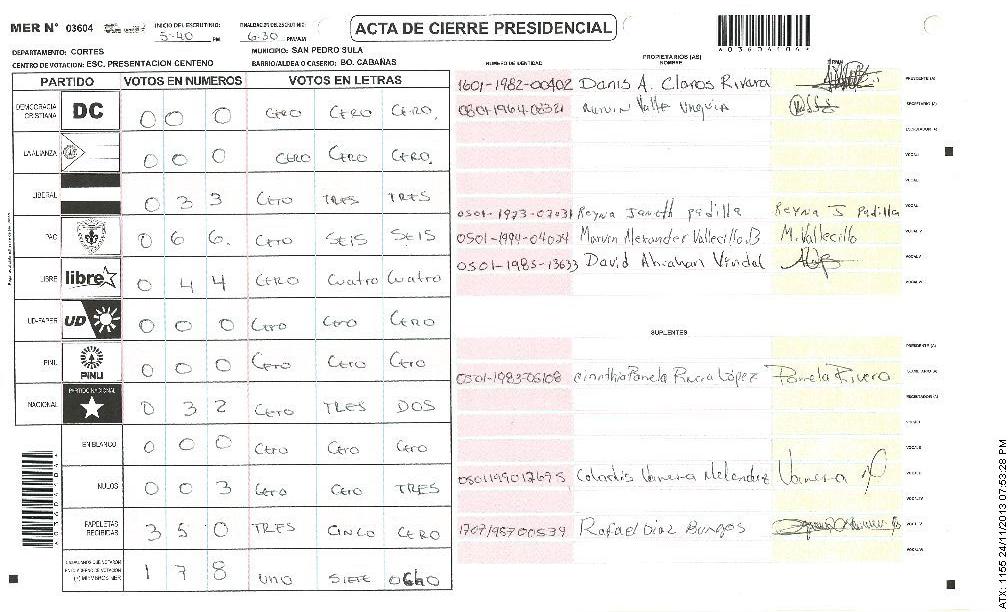 MER N° 03604 INICIO DEL ESCRUTINIO: 5-40 PM FINALIZACION DE ESCRUTINIO: 6:30 PM/AM
ACTA DE CIERRE PRESIDENCIAL
DEPARTAMENTO: CORTES MUNICIPIO: SAN PEDRO SULA
CENTRO DE VOTACION: ESC. PRESENTACION CENTENO BARRIO/ALDEA O CASERIO: BO. CABAÑAS
PARTIDO VOTOS EN NUMEROS VOTOS EN LETRAS
DEMOCRACIA CRISTIANA DC 0 0 0 CERO CERO CERO.
LA ALIANZA 0 0 0 CERO CERO CERO.
LIBERAL 0 3 3 CERO TRES TRES
PAC 0 6 6. CERO SEIS SEIS
LIBRE libre 0 4 4 CERO Cuatro Cuatro
UD-FAPER UD 0 0 0 CERO CERO CERO
PINU PINU 0 0 0 CERO CERO CERO
NACIONAL PARTIDO NACIONAL 0 3 2 CERO TRES DOS
EN BLANCO 0 0 0 CERO CERO CERO
NULOS 0 0 3 CERO CERO TRES
PAPELETAS RECIBIDAS 3 5 0 TRES CINCO CERO
(+) MIEMBROS MER 1 7 8 UNO SIETE OCHO
NUMERO DE IDENTIDAD PROPIETARIOS (AS) NOMBRE FIRMA
1601-1982-00402 Danis A. Claros Rivera PRESIDENTE (A)
0801-1964-08321 Valle SECRETARIO (A)
ESCRUTADOR (A)
VOCAL I
0501-1973-07031 Reyna Janeth padilla Reyna J Padilla
0501-1994-04024 Marvin Alexander Vallecillo.B M. Vallecillo
0501-1985-13633 David Abrahan
SUPLENTES
PRESIDENTE (A)
0501-1983-06108 Pamela Rivera López Pamela Rivera SECRETARIO (A)
ESCRUTADOR (A)
Vanessa Melendez Vanessa
1707198700539 Rafael Diaz Burgos
ATX: 1155 24/11/2013 07:53:28 PM